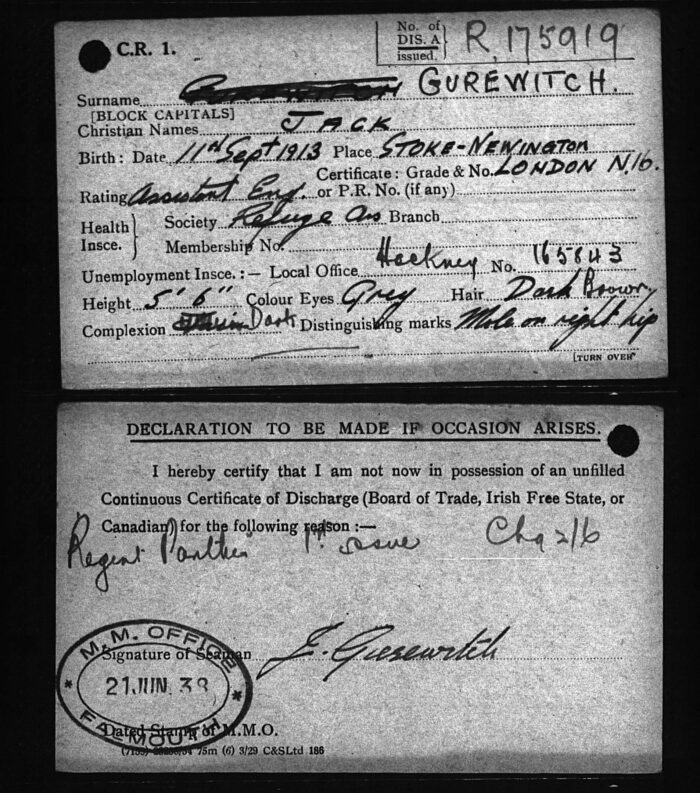 C.R. 1.
No. of DIS. A issued. R, 175919
Surname GUREWITCH.
[BLOCK CAPITALS]
Christian Names JACK
Birth: Date 11th Sept 1913 Place STOKE-NEWINGTON
Certificate: Grade & No. LONDON N.16.
Rating Assistant Eng. or P.R. No. (if any)
Health Insce. } Society Refuge Ass Branch
Membership No.
Unemployment Insce. :— Local Office Hackney No. 165843
Height 5' 6" Colour Eyes Grey Hair Dark Brown
Complexion Dark Distinguishing marks Mole on right hip
[TURN OVER
DECLARATION TO BE MADE IF OCCASION ARISES.
I hereby certify that I am not now in possession of an unfilled
Continuous Certificate of Discharge (Board of Trade, Irish Free State, or
Canadian) for the following reason :—
Regent Panther 1st issue Chg 2/6
Signature of Seaman J. Gurewitch
M.M. OFFICE
21 JUN. 38
FALMOUTH
Dated Stamp of M.M.O.
75m (6) 3/29 C&SLtd 186